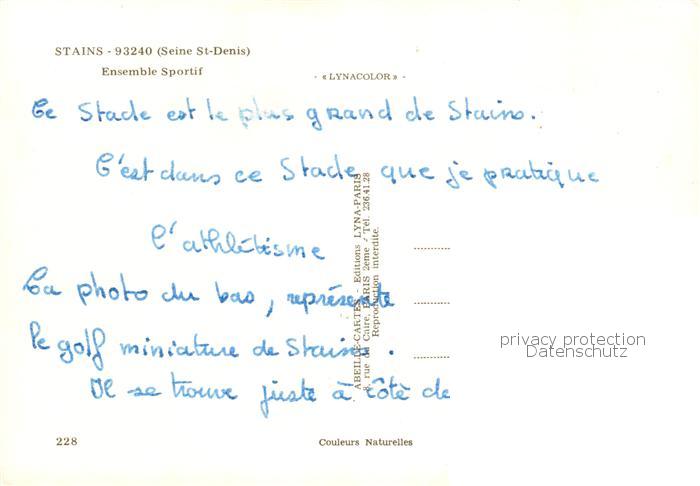 STAINS - 93240 (Seine St-Denis)
Ensemble Sportif
- «LYNACOLOR» -
Ce Stade est le plus grand de Stains.
C'est dans ce Stade que je pratique
l'athlétisme
La photo du bas, représente
le golf miniature de Stains.
Il se trouve juste à côté de
ABEILLE-CARTES - Editions LYNA-PARIS
8, rue du Caire, PARIS 2eme - Tél. 236.41.28
Reproduction interdite.
privacy protection
Datenschutz
228
Couleurs Naturelles